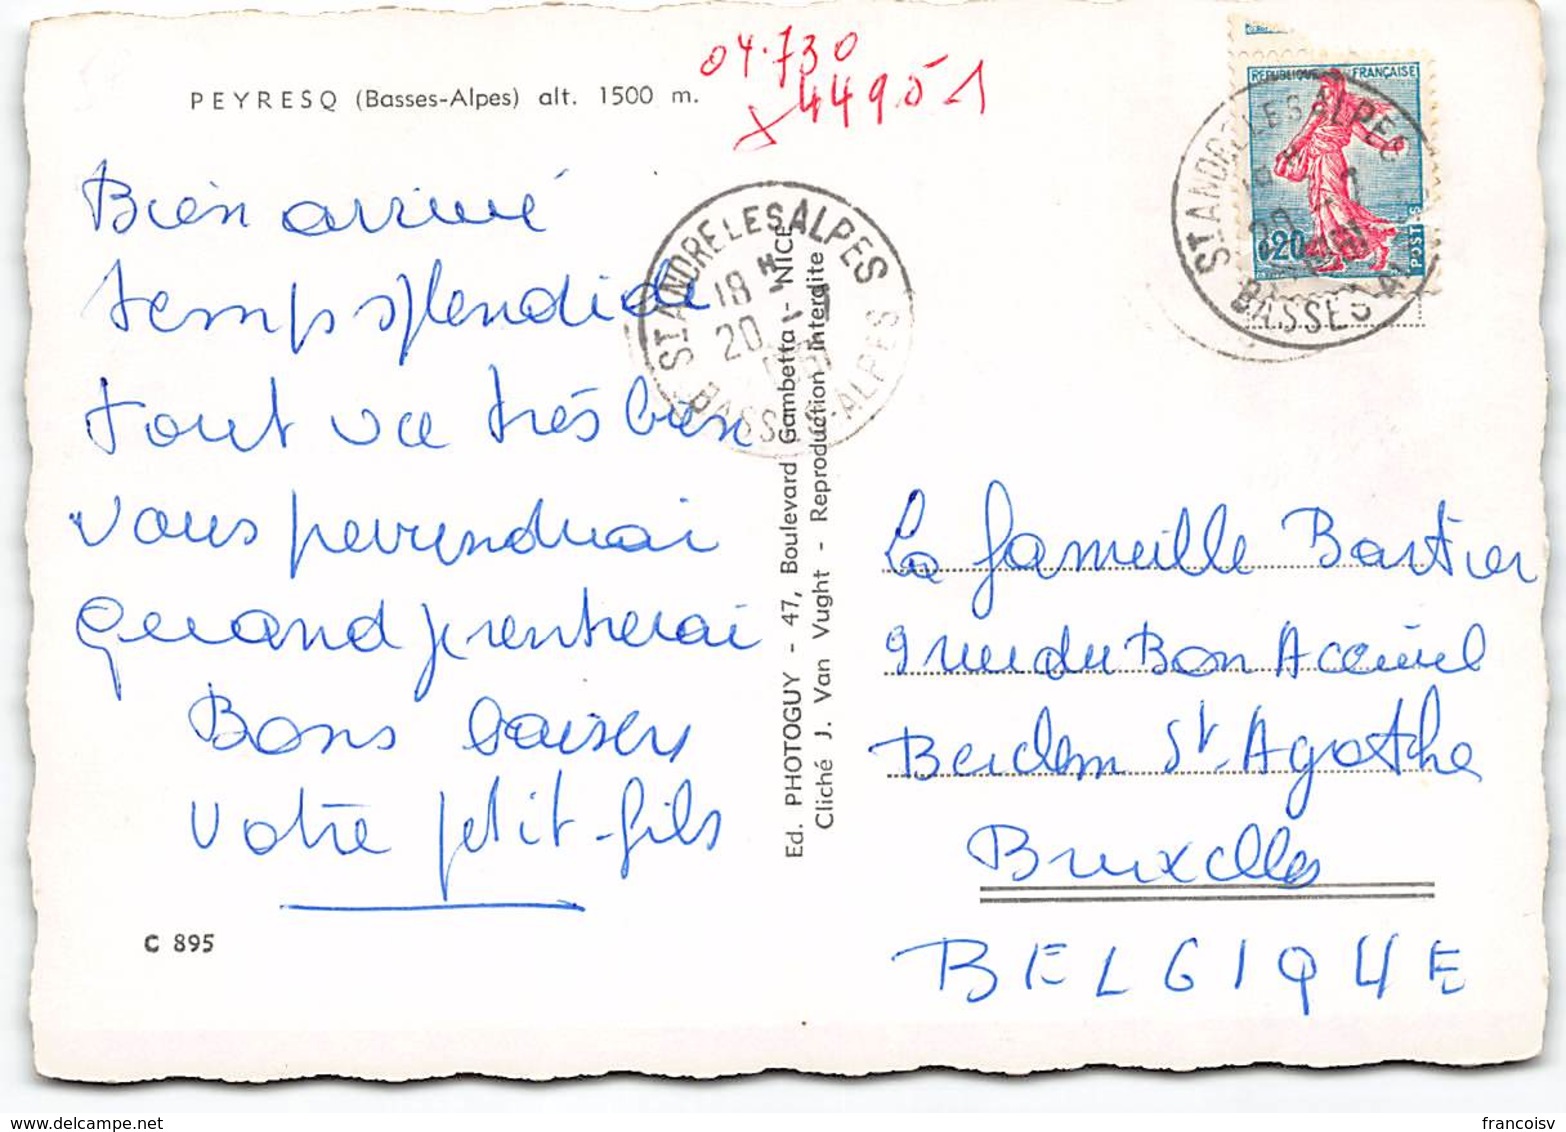 PEYRESQ (Basses-Alpes) alt. 1500 m.
04.730
x 44951
Bien arrivé
temp splendide
tout va très bien
vous
quand je rentrerai
Bons baisers
Votre petit-fils
C 895
ST ANDRE LES ALPES
18 H
20 - 7
1961
BASSES-ALPES
Ed. PHOTOGUY - 47, Boulevard Gambetta - NICE
Cliché J. Van Vught - Reproduction Interdite
REPUBLIQUE FRANÇAISE
0,20
POSTES
ST ANDRE LES ALPES
BASSES-A
La fameille Bastier
9 rue du Bon Acceuil
Berchem St. Agathe
Bruxelles
BELGIQUE
francoisv